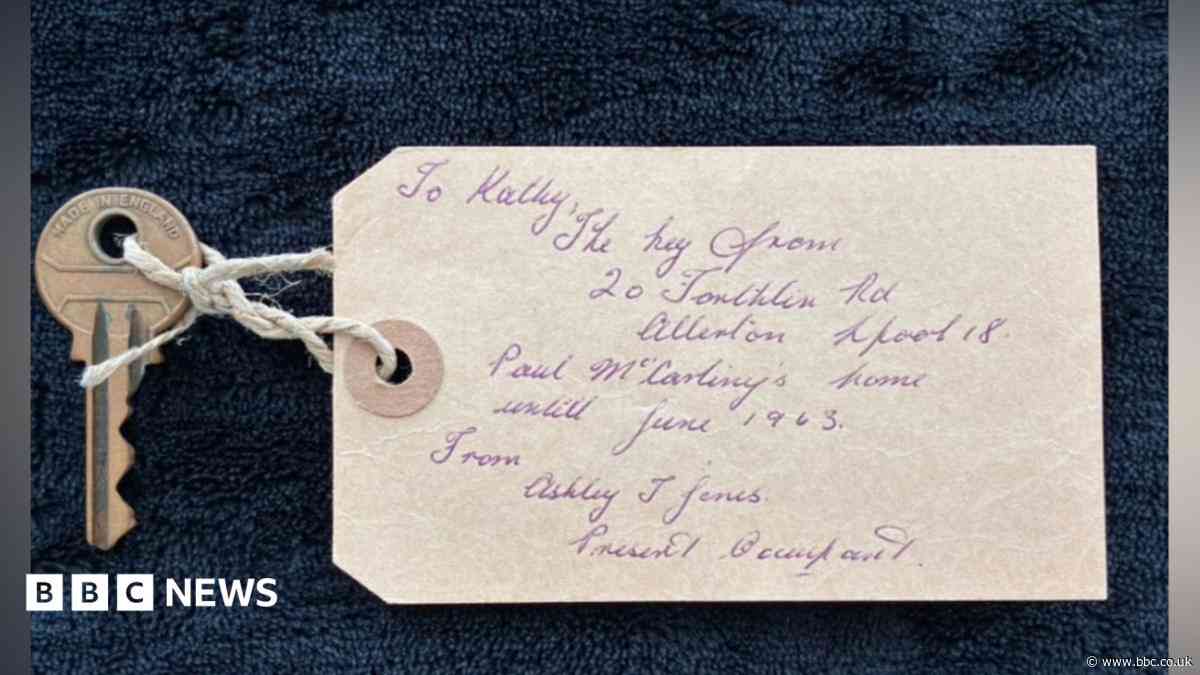 MADE IN ENGLAND
To Kathy,
The key from
20 Forthlin Rd
Allerton Lpool 18.
Paul McCartiny's home
untill June 1963.
From
Ashley T Jones.
Present Occupant.
BBC NEWS
© www.bbc.co.uk